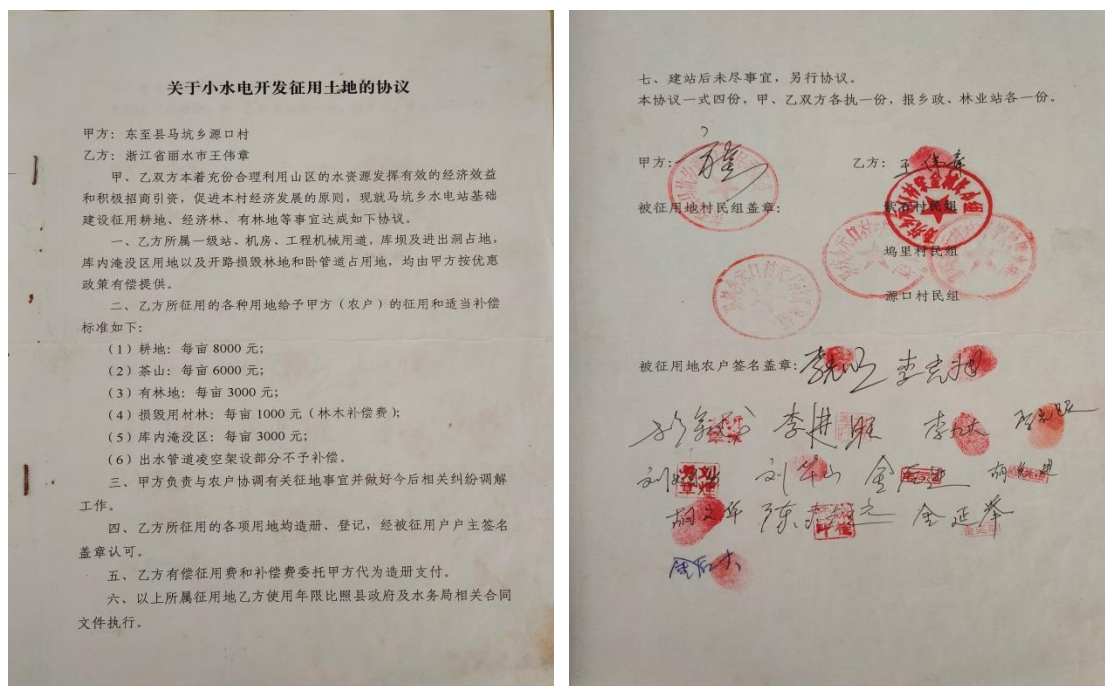 关于小水电开发征用土地的协议
甲方：东至县马坑乡源口村
乙方：浙江省丽水市王伟章
甲、乙双方本着充份合理利用山区的水资源发挥有效的经济效益
和积极招商引资，促进本村经济发展的原则，现就马坑乡水电站基础
建设征用耕地、经济林、有林地等事宜达成如下协议。
一、乙方所属一级站、机房、工程机械用道，库坝及进出洞占地，
库内淹没区用地以及开路损毁林地和卧管道占用地，均由甲方按优惠
政策有偿提供。
二、乙方所征用的各种用地给予甲方（农户）的征用和适当补偿
标准如下：
（1）耕地：每亩 8000 元；
（2）茶山：每亩 6000 元；
（3）有林地：每亩 3000 元；
（4）损毁用材林：每亩 1000 元（林木补偿费）；
（5）库内淹没区：每亩 3000 元；
（6）出水管道凌空架设部分不予补偿。
三、甲方负责与农户协调有关征地事宜并做好今后相关纠纷调解
工作。
四、乙方所征用的各项用地均造册、登记，经被征用户户主签名
盖章认可。
五、乙方有偿征用费和补偿费委托甲方代为造册支付。
六、以上所属征用地乙方使用年限比照县政府及水务局相关合同
文件执行。
七、建站后未尽事宜，另行协议。
本协议一式四份，甲、乙双方各执一份，报乡政、林业站各一份。
甲方：
乙方：王伟章
被征用地村民组盖章：
紫石村民组
坞里村民组
源口村民组
被征用地农户签名盖章：
李进
刘华山 金
胡文华 金延举